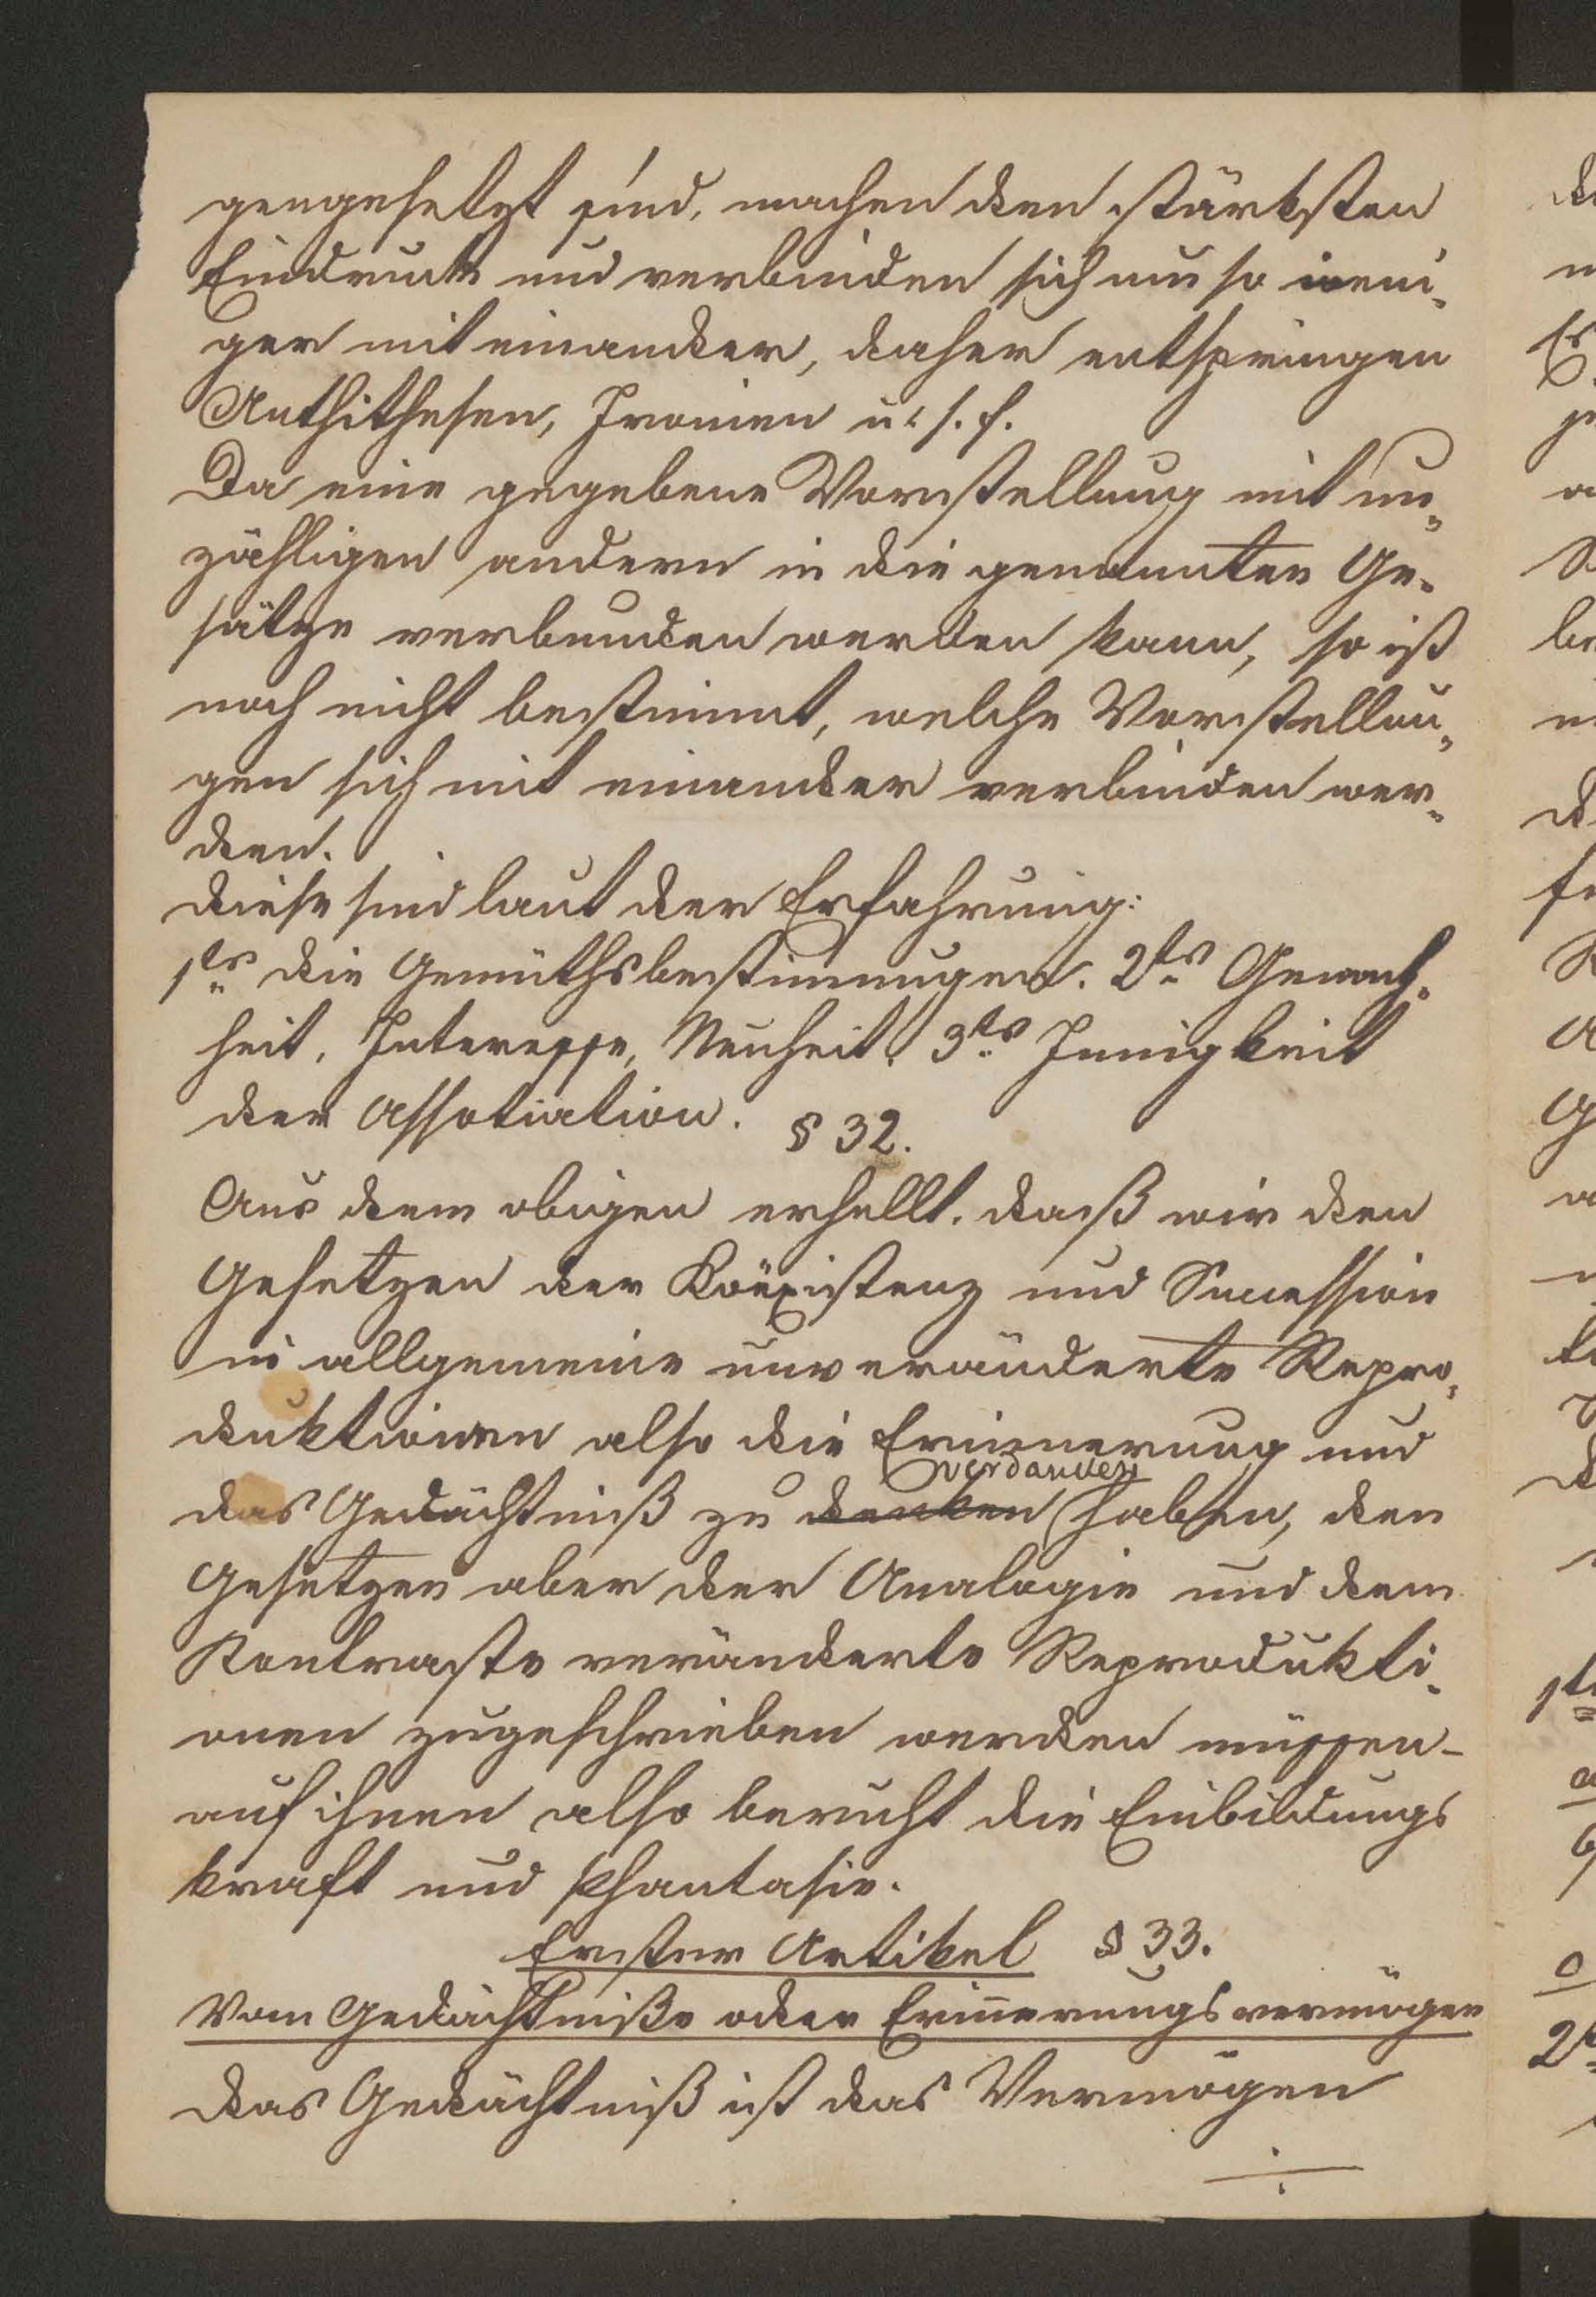 gengesetzt sind, machen den stärksten
Eindruck und verbinden sich um so weni-
ger mit einander, daher entspringen
Anthithesen, Ironien u. s. f.
Da eine gegebene Vorstellung mit un-
zähligen andern in die genannten Ge-
sätze verbunden werden kann, so ist
noch nicht bestimmt, welche Vorstellun-
gen sich mit einander verbinden wer-
den.
Diese sind laut der Erfahrung:
1tens die Gemüthsbestimmungen. 2tens Gewohn-
heit, Interesse, Neuheit, 3tens Innigkeit
der Assotiation.
§ 32.
Aus dem obigen erhellt, daß wir den
Gesetzen der Koëxistenz und Succession
in allgemeine unveränderte Repro-
duktionen also die Erinnerung und
verdanken
das Gedächtniß zu denken haben, den
Gesetzen aber der Analogie und dem
Kontraste veränderte Reprodukti-
onen zugeschrieben werden müssen-
auf ihnen also beruht die Einbildungs
kraft und Phantasie.
Erster Artikel § 33.
Vom Gedächtniße oder Erinnerungsvermögen
Das Gedächtniß ist das Vermögen